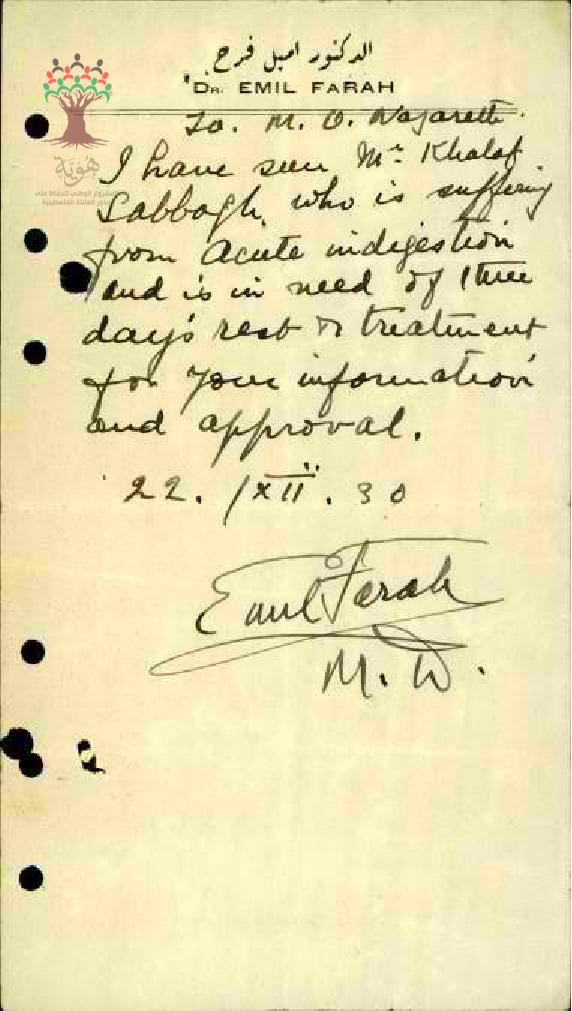 الدكتور اميل فرح
DR. EMIL FARAH
To. M. O. Nazareth.
I have seen Mr Khalaf
Sabbagh, who is suffering
from acute indigestion
and is in need of three
day's rest & treatment
for your information
and approval.
22. /XII. 30
Emil Farah
M. D.
هوية
المشروع الوطني للحفاظ على
جذور العائلة الفلسطينية